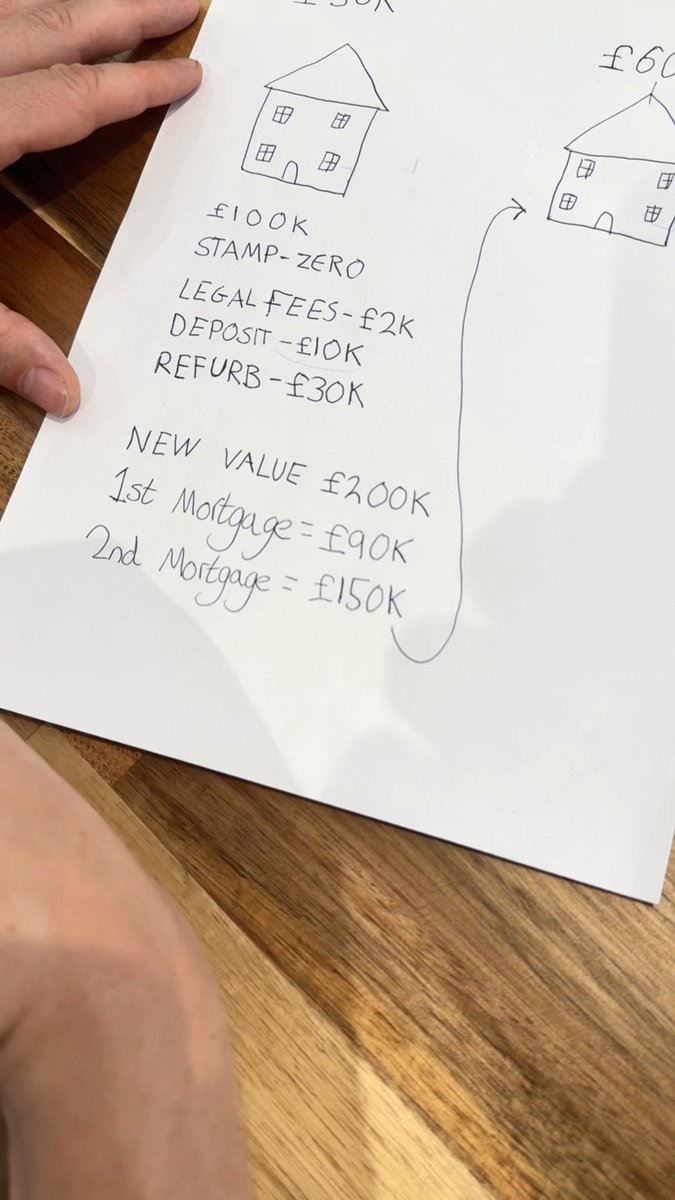 £60
£100K
STAMP-ZERO
LEGAL FEES-£2K
DEPOSIT-£10K
REFURB-£30K
NEW VALUE £200K
1st Mortgage=£90K
2nd Mortgage = £150K